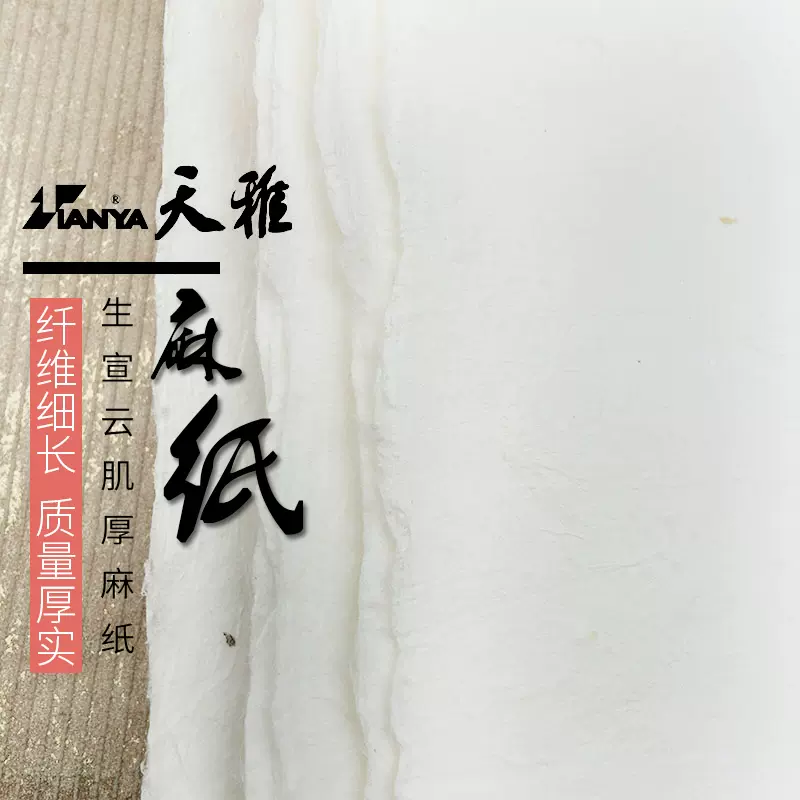 TIANYA® 天雅
麻纸
生宣云肌厚麻纸
纤维细长 质量厚实